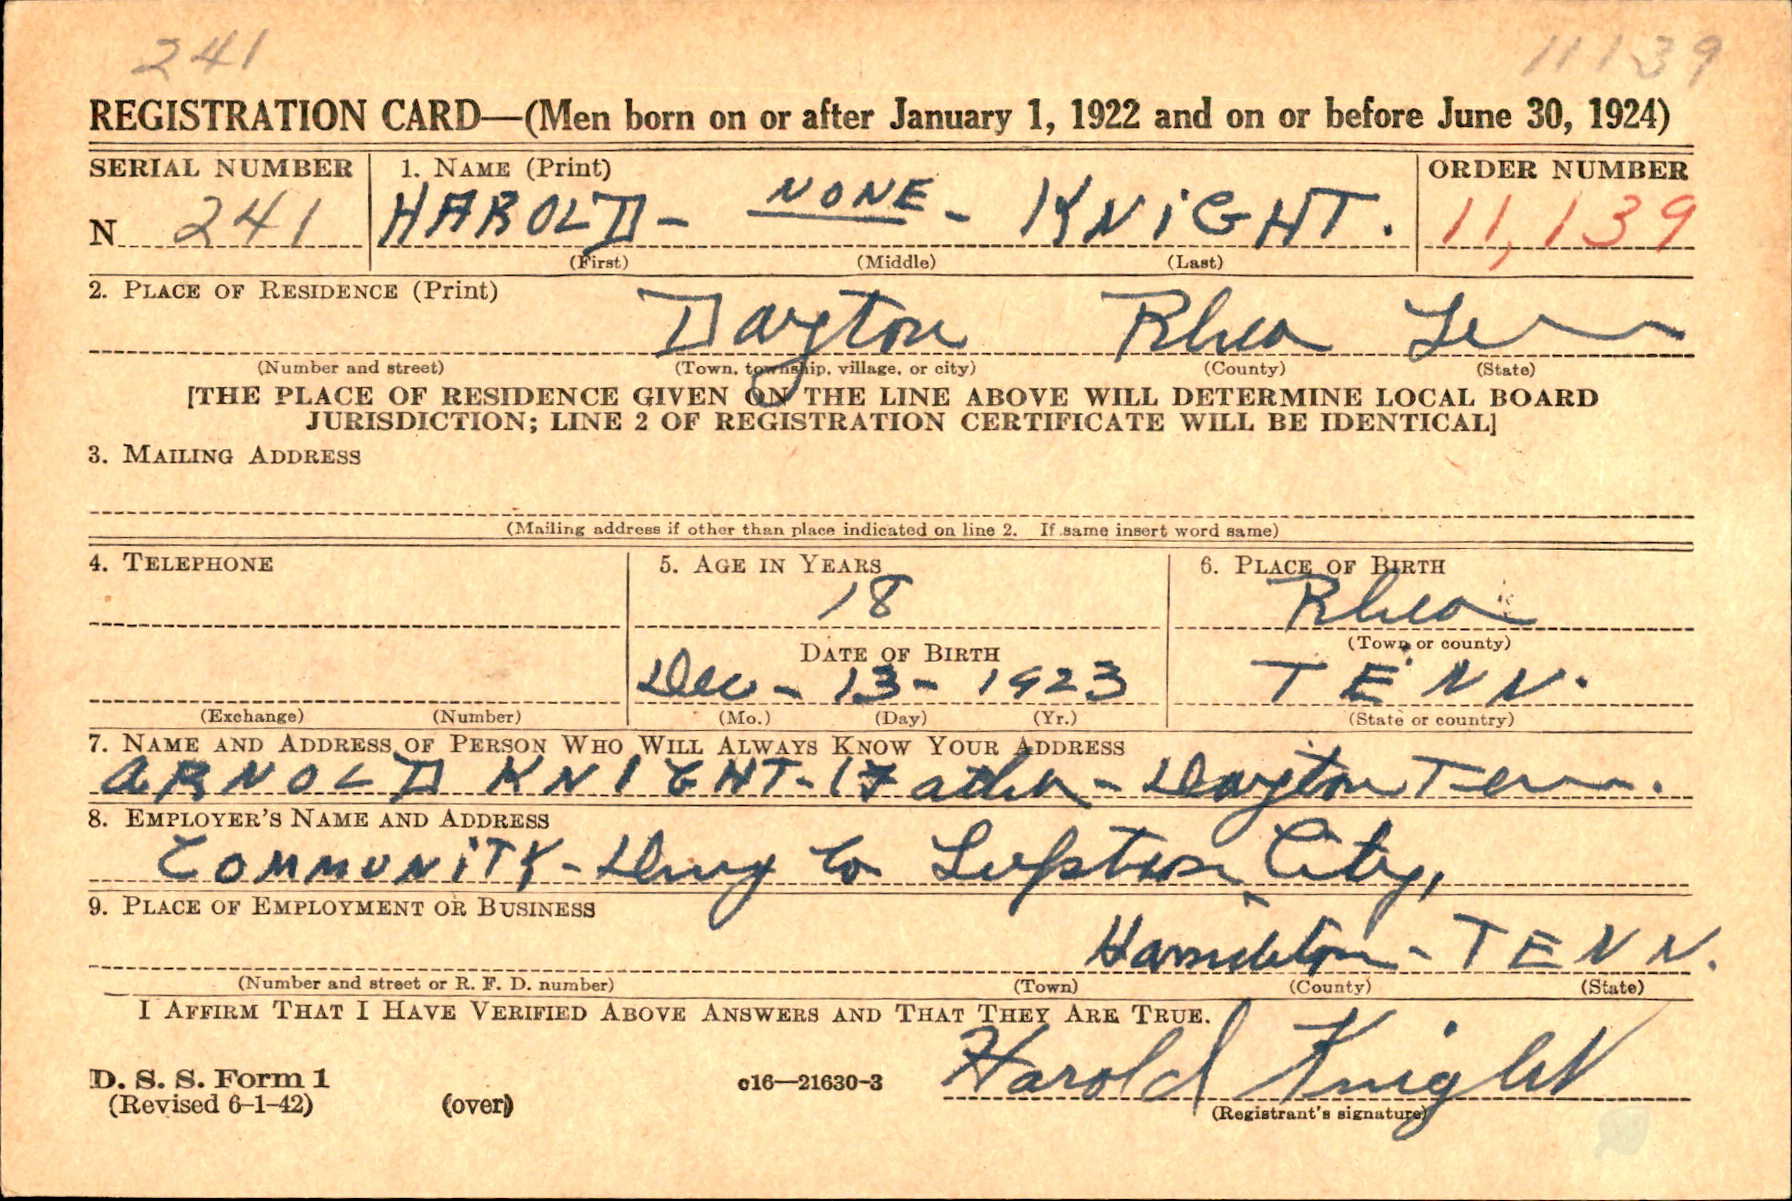 241 11139
REGISTRATION CARD—(Men born on or after January 1, 1922 and on or before June 30, 1924)
SERIAL NUMBER 1. NAME (Print) ORDER NUMBER
N 241 HAROLD - NONE - KNIGHT. 11,139
(First) (Middle) (Last)
2. PLACE OF RESIDENCE (Print)
Dayton Rhea Tenn
(Number and street) (Town, township, village, or city) (County) (State)
[THE PLACE OF RESIDENCE GIVEN ON THE LINE ABOVE WILL DETERMINE LOCAL BOARD
JURISDICTION; LINE 2 OF REGISTRATION CERTIFICATE WILL BE IDENTICAL]
3. MAILING ADDRESS
(Mailing address if other than place indicated on line 2. If same insert word same)
4. TELEPHONE 5. AGE IN YEARS 6. PLACE OF BIRTH
18 Rhea
(Town or county)
DATE OF BIRTH
Dec - 13 - 1923 TENN.
(Exchange) (Number) (Mo.) (Day) (Yr.) (State or country)
7. NAME AND ADDRESS OF PERSON WHO WILL ALWAYS KNOW YOUR ADDRESS
ARNOLD KNIGHT - Father - Dayton Tenn.
8. EMPLOYER'S NAME AND ADDRESS
COMMUNITY - Drug Co Lupton City,
9. PLACE OF EMPLOYMENT OR BUSINESS
Hamilton - TENN.
(Number and street or R. F. D. number) (Town) (County) (State)
I AFFIRM THAT I HAVE VERIFIED ABOVE ANSWERS AND THAT THEY ARE TRUE.
Harold Knight
D. S. S. Form 1
(Revised 6-1-42) (over) c16—21630-3 (Registrant's signature)